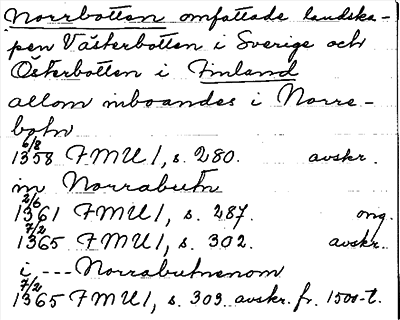 Norrbotten omfattade landska-
pen Västerbotten i Sverige och
Österbotten i Finland
allom inboandes i Norre-
botn
6/8
1358 FMU I, s. 280. avskr.
in Norrabutn
2/6
1361 FMU I, s. 287. orig.
7/2
1365 FMU I, s. 302. avskr.
i --- Norrabutnenom
7/2
1365 FMU I, s. 303 avskr. fr. 1500-t.